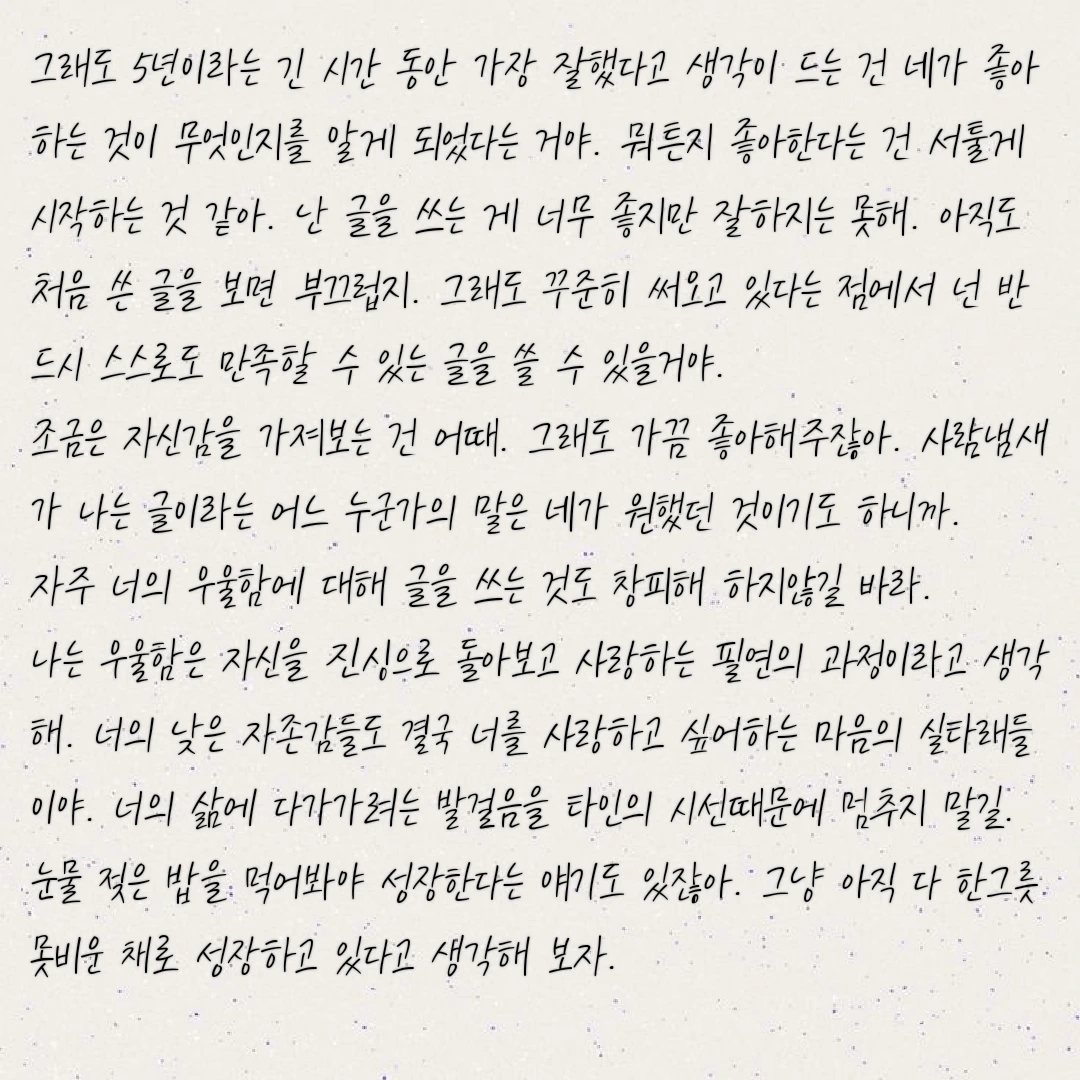 그래도 5년이라는 긴 시간 동안 가장 잘했다고 생각이 드는 건 네가 좋아
하는 것이 무엇인지를 알게 되었다는 거야. 뭐든지 좋아한다는 건 서툴게
시작하는 것 같아. 난 글을 쓰는 게 너무 좋지만 잘하지는 못해. 아직도
처음 쓴 글을 보면 부끄럽지. 그래도 꾸준히 써오고 있다는 점에서 넌 반
드시 스스로도 만족할 수 있는 글을 쓸 수 있을거야.
조금은 자신감을 가져보는 건 어때. 그래도 가끔 좋아해주잖아. 사람냄새
가 나는 글이라는 어느 누군가의 말은 네가 원했던 것이기도 하니까.
자주 너의 우울함에 대해 글을 쓰는 것도 창피해 하지않길 바라.
나는 우울함은 자신을 진심으로 돌아보고 사랑하는 필연의 과정이라고 생각
해. 너의 낮은 자존감들도 결국 너를 사랑하고 싶어하는 마음의 실타래들
이야. 너의 삶에 다가가려는 발걸음을 타인의 시선때문에 멈추지 말길.
눈물 젖은 밥을 먹어봐야 성장한다는 얘기도 있잖아. 그냥 아직 다 한그릇
못비운 채로 성장하고 있다고 생각해 보자.